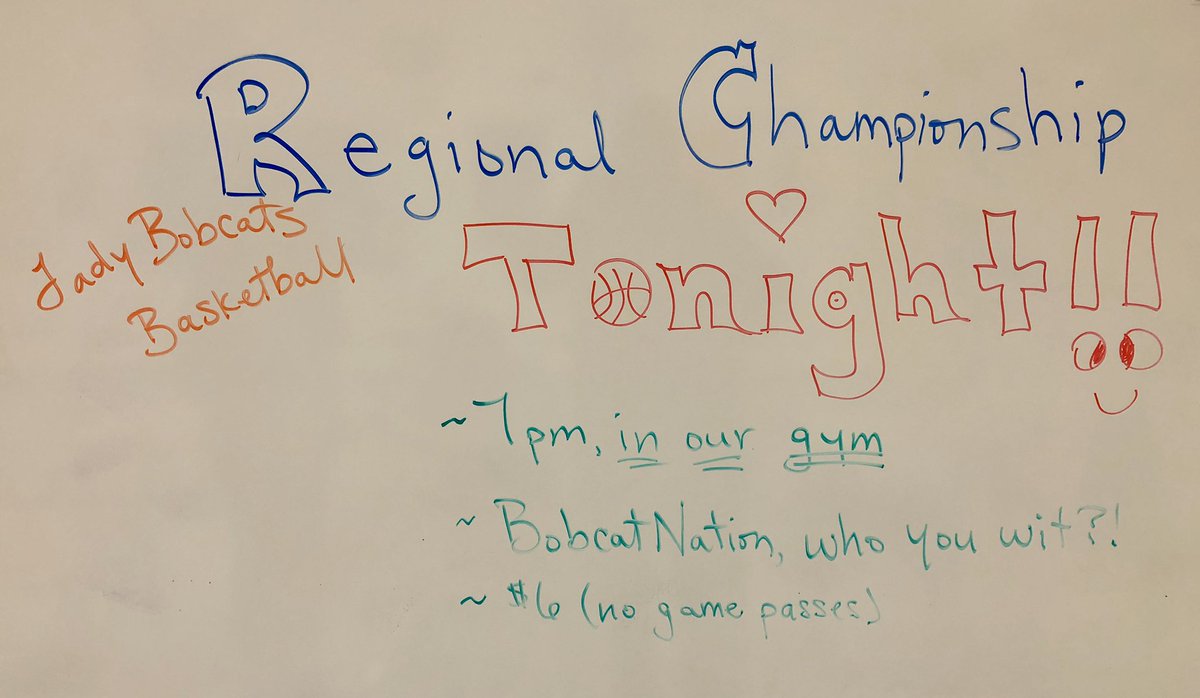 Regional Championship
Lady Bobcats
Basketball
Tonight!!
~ 7pm, in our gym
~ BobcatNation, who you wit?!
~ $6 (no game passes)